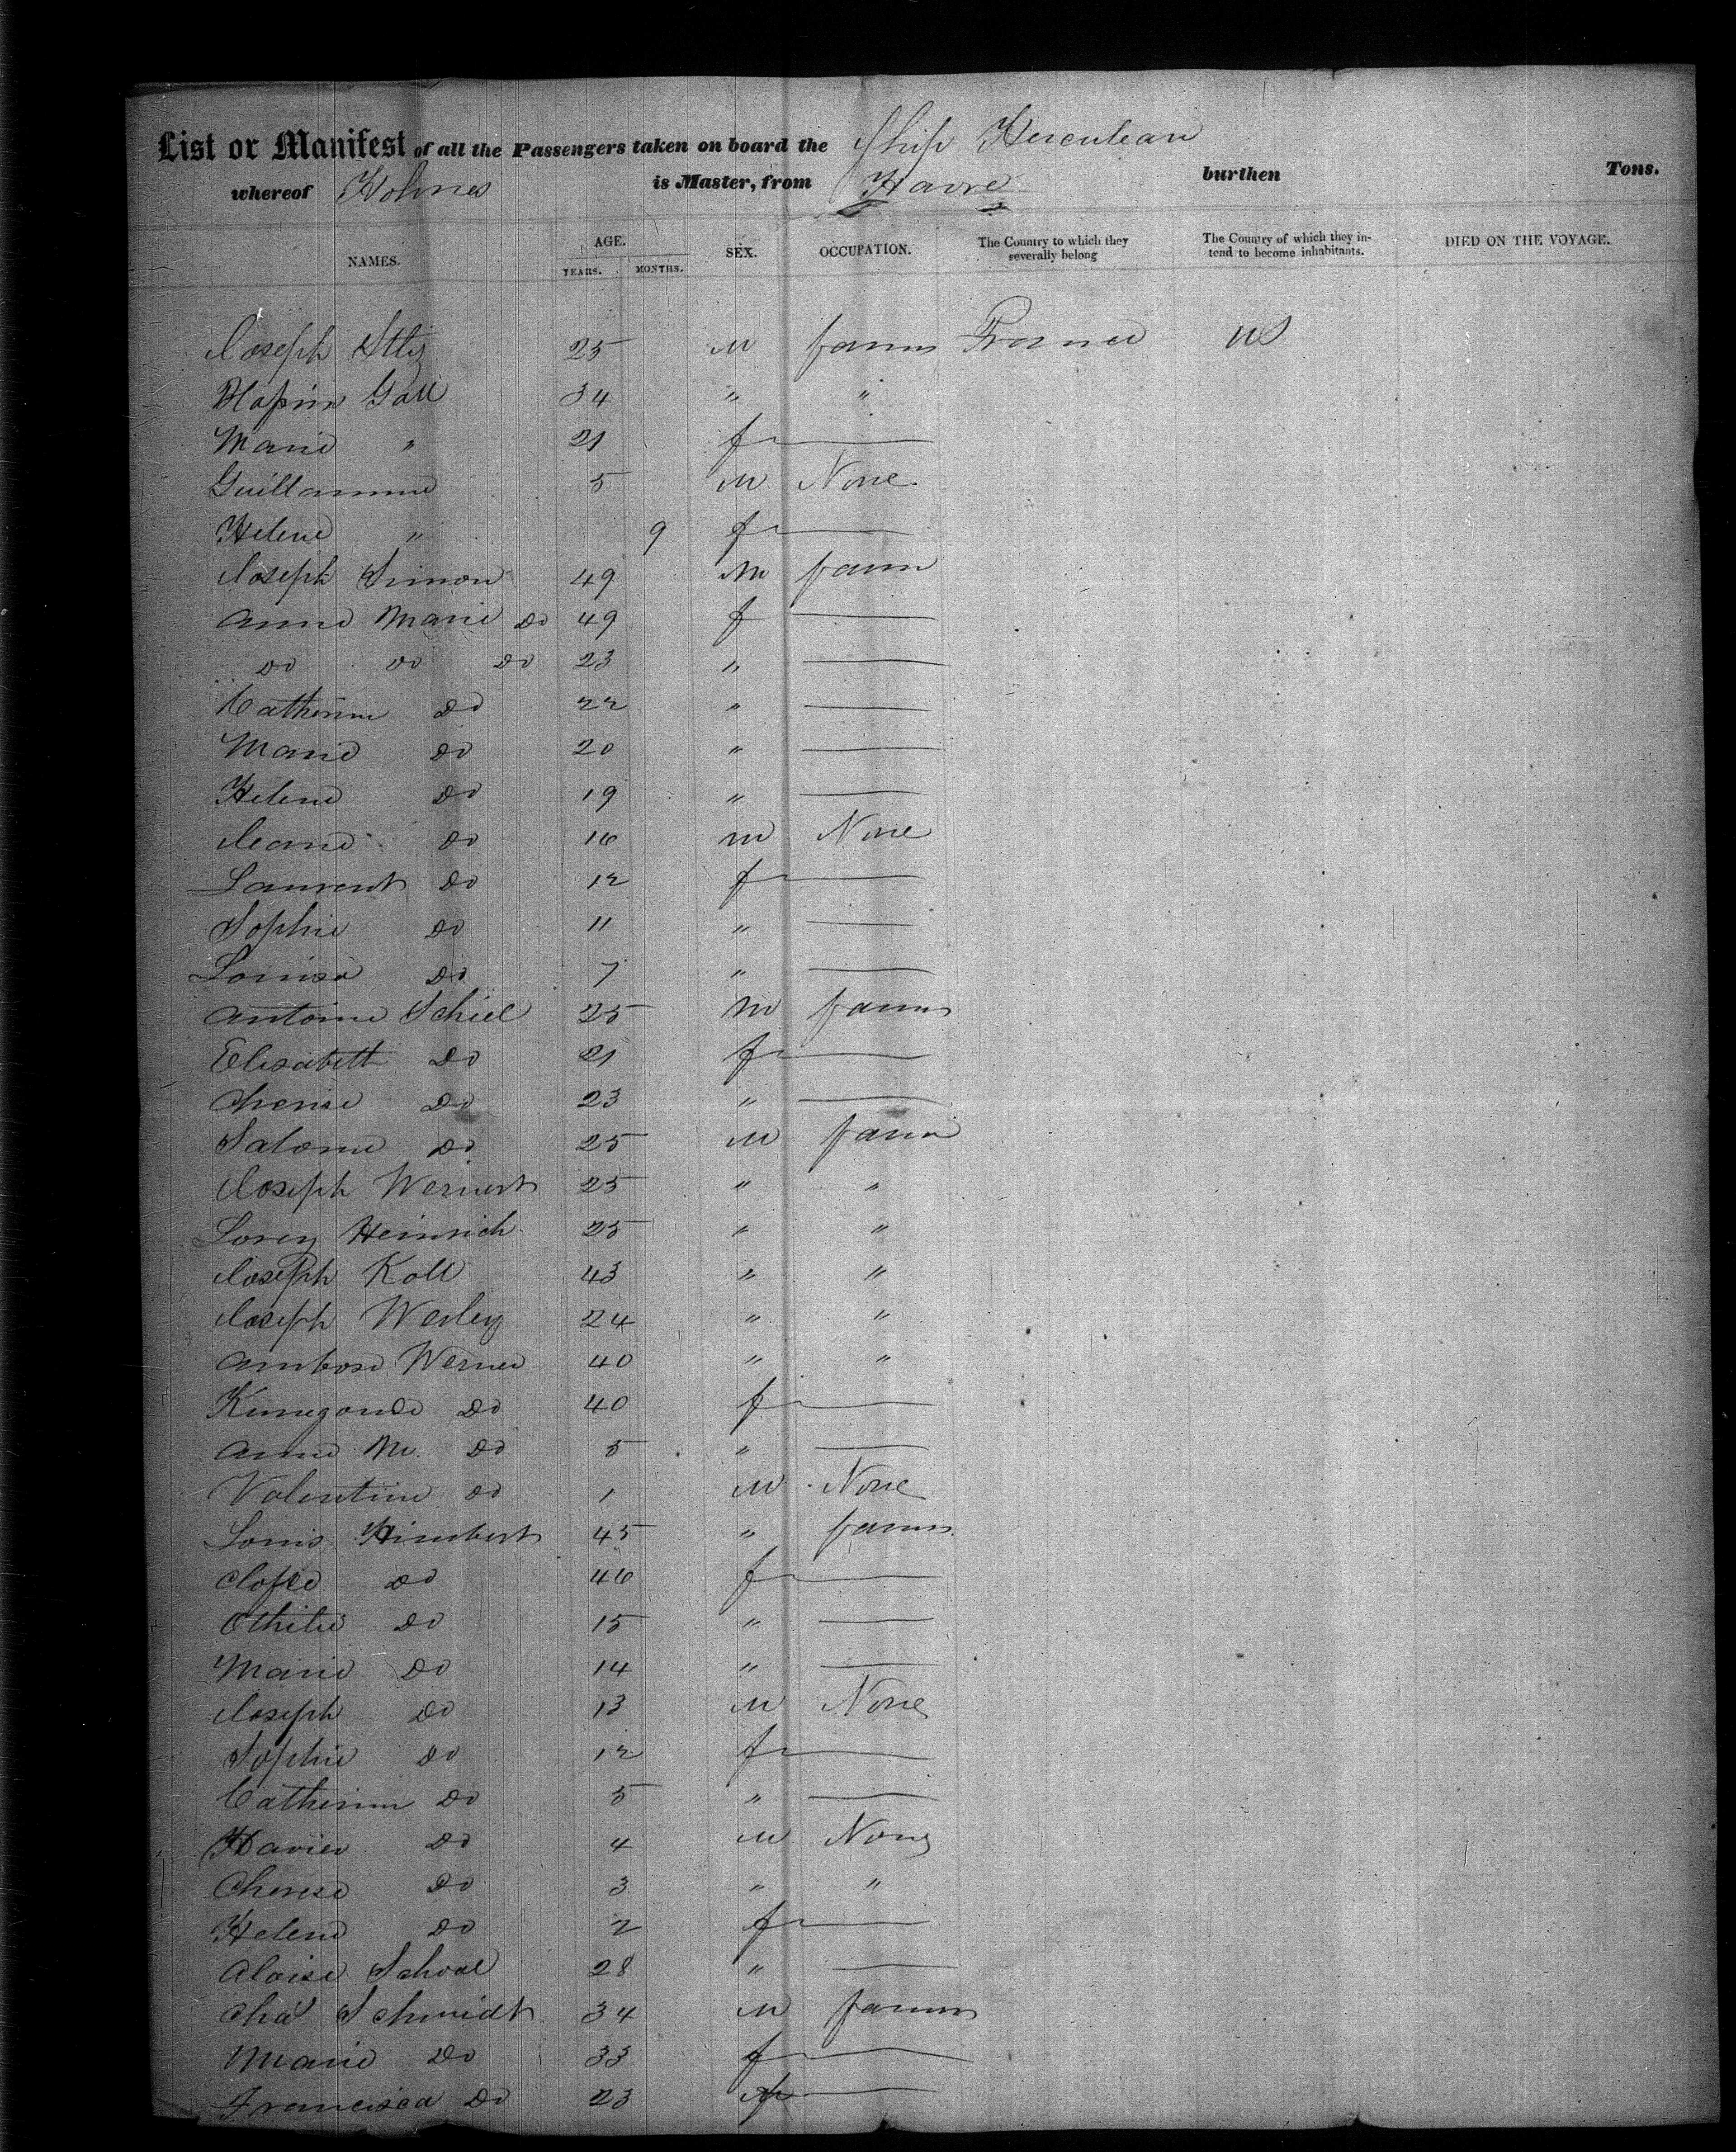 List or Manifest of all the Passengers taken on board the Ship Herculean
whereof Holmes is Master, from Havre burthen Tons.
NAMES. AGE. YEARS. MONTHS. SEX. OCCUPATION. The Country to which they severally belong The Country of which they intend to become inhabitants. DIED ON THE VOYAGE.
Joseph 25 M farmer France US
Gall 34 " "
Marie " 21 f —
Guillaumme 5 M None
Helene " 9 f —
Joseph Simon 49 M farm
Anne Marie Do 49 f —
Do Do Do 23 " —
Catherine Do 22 " —
Marie Do 20 " —
Helene Do 19 " —
Do 16 M None
Laurent Do 12 f —
Sophie Do 11 " —
Louisa Do 7 " —
Antoine Schiel 25 M farmer
Elisabeth Do 21 f —
Do 23 " —
Salome Do 25 M farm
Joseph Wernert 25 " "
Lorenz Heinrich 25 " "
Joseph Koll 43 " "
Joseph Werley 24 " "
Ambrose Werner 40 " "
Kunegonde Do 40 f —
Anne M. Do 5 " —
Valentine Do 1 M None
Louis Himbert 45 " farmer
Do 46 f —
Othilie Do 15 " —
Marie Do 14 " —
Joseph Do 13 M None
Sophie Do 12 f —
Catherine Do 5 " —
Xavier Do 4 M None
Do 3 " "
Helene Do 2 f —
Aloise School 28 " —
Chas Schmidt 34 M farmer
Marie Do 33 f —
Francisca Do 23 f —